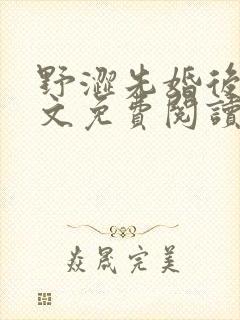 野澀先婚後
文免費閱讀
焱晟完美